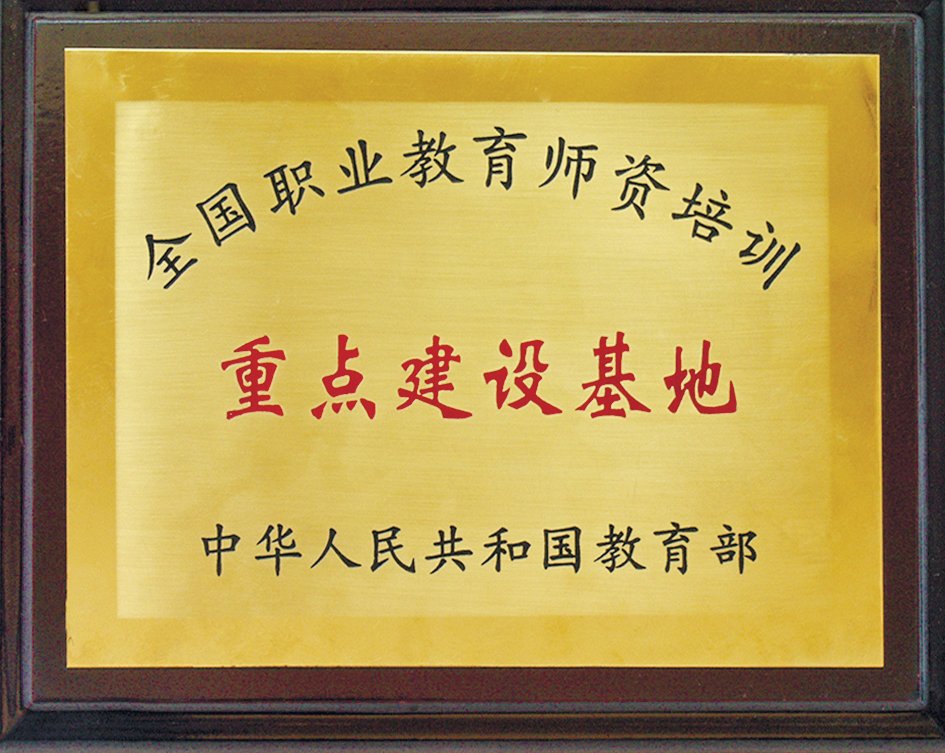 全国职业教育师资培训
重点建设基地
中华人民共和国教育部